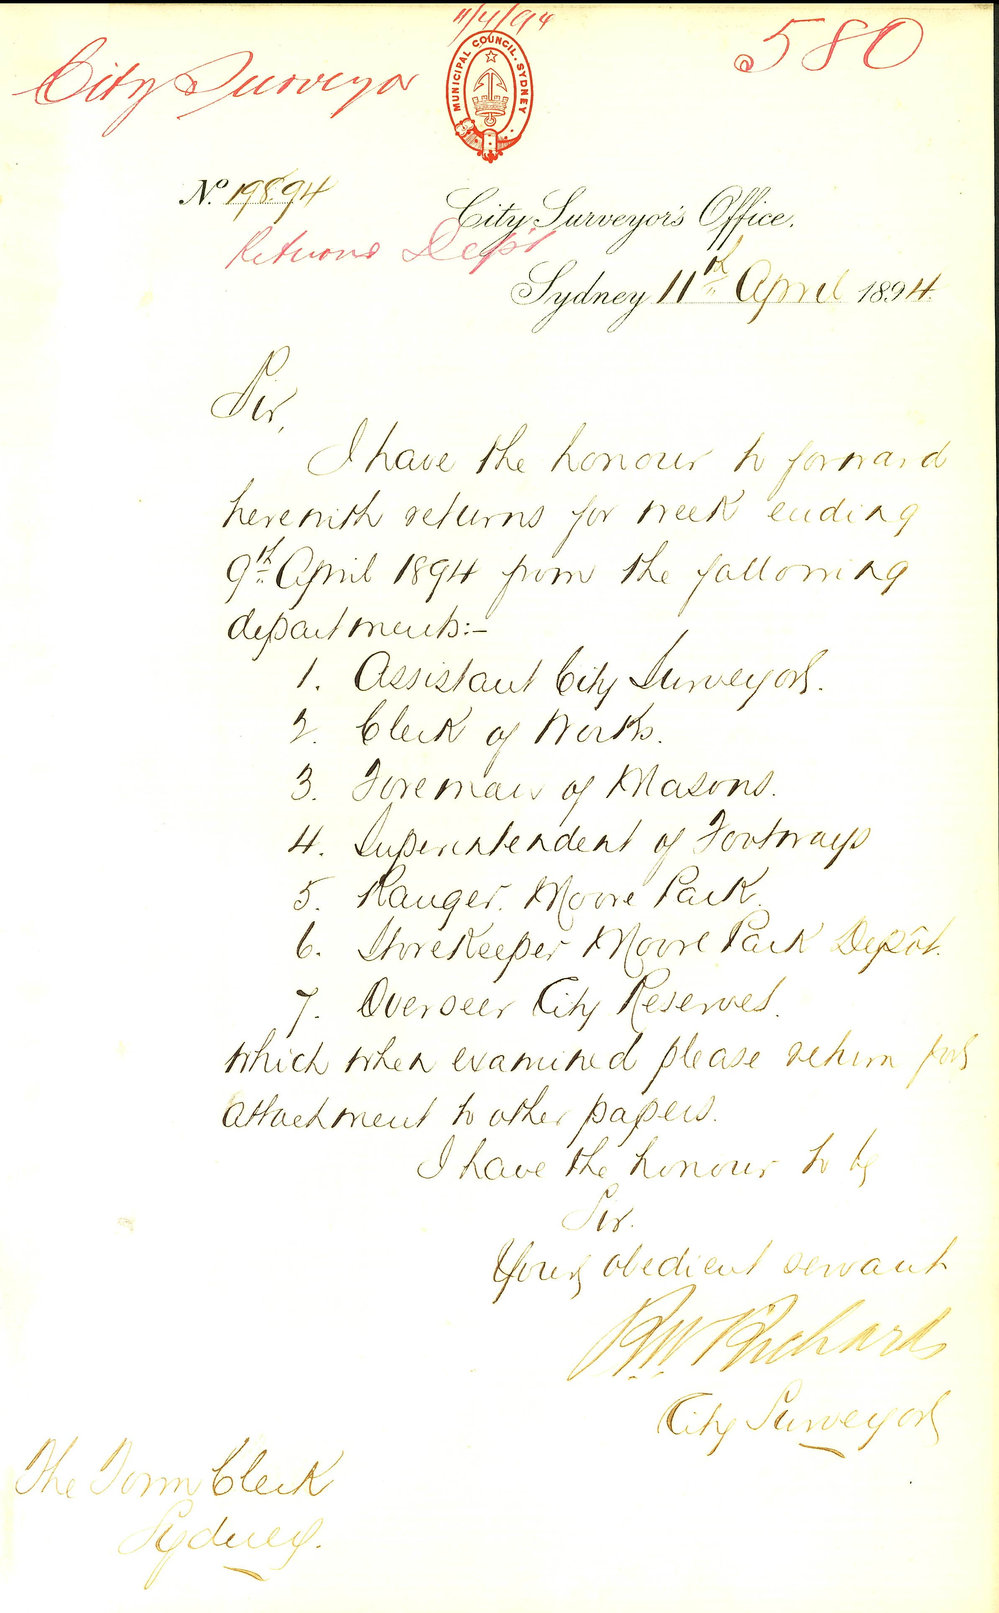 11/4/94
City Surveyor
580
MUNICIPAL COUNCIL. SYDNEY
No. 198.94
City Surveyor's Office.
Returns Dep't
Sydney 11th April 1894.
Sir,
I have the honour to forward
herewith returns for week ending
9th April 1894 from the following
departments:-
1. Assistant City Surveyor.
2. Clerk of Works.
3. Foreman of Masons.
4. Superintendent of Footways
5. Ranger. Moore Park.
6. Storekeeper Moore Park Depôt.
7. Overseer City Reserves.
which when examined please return for
attachment to other papers.
I have the honour to be
Sir.
Your obedient servant
R.W. Richards
City Surveyor
The Town Clerk
Sydney.